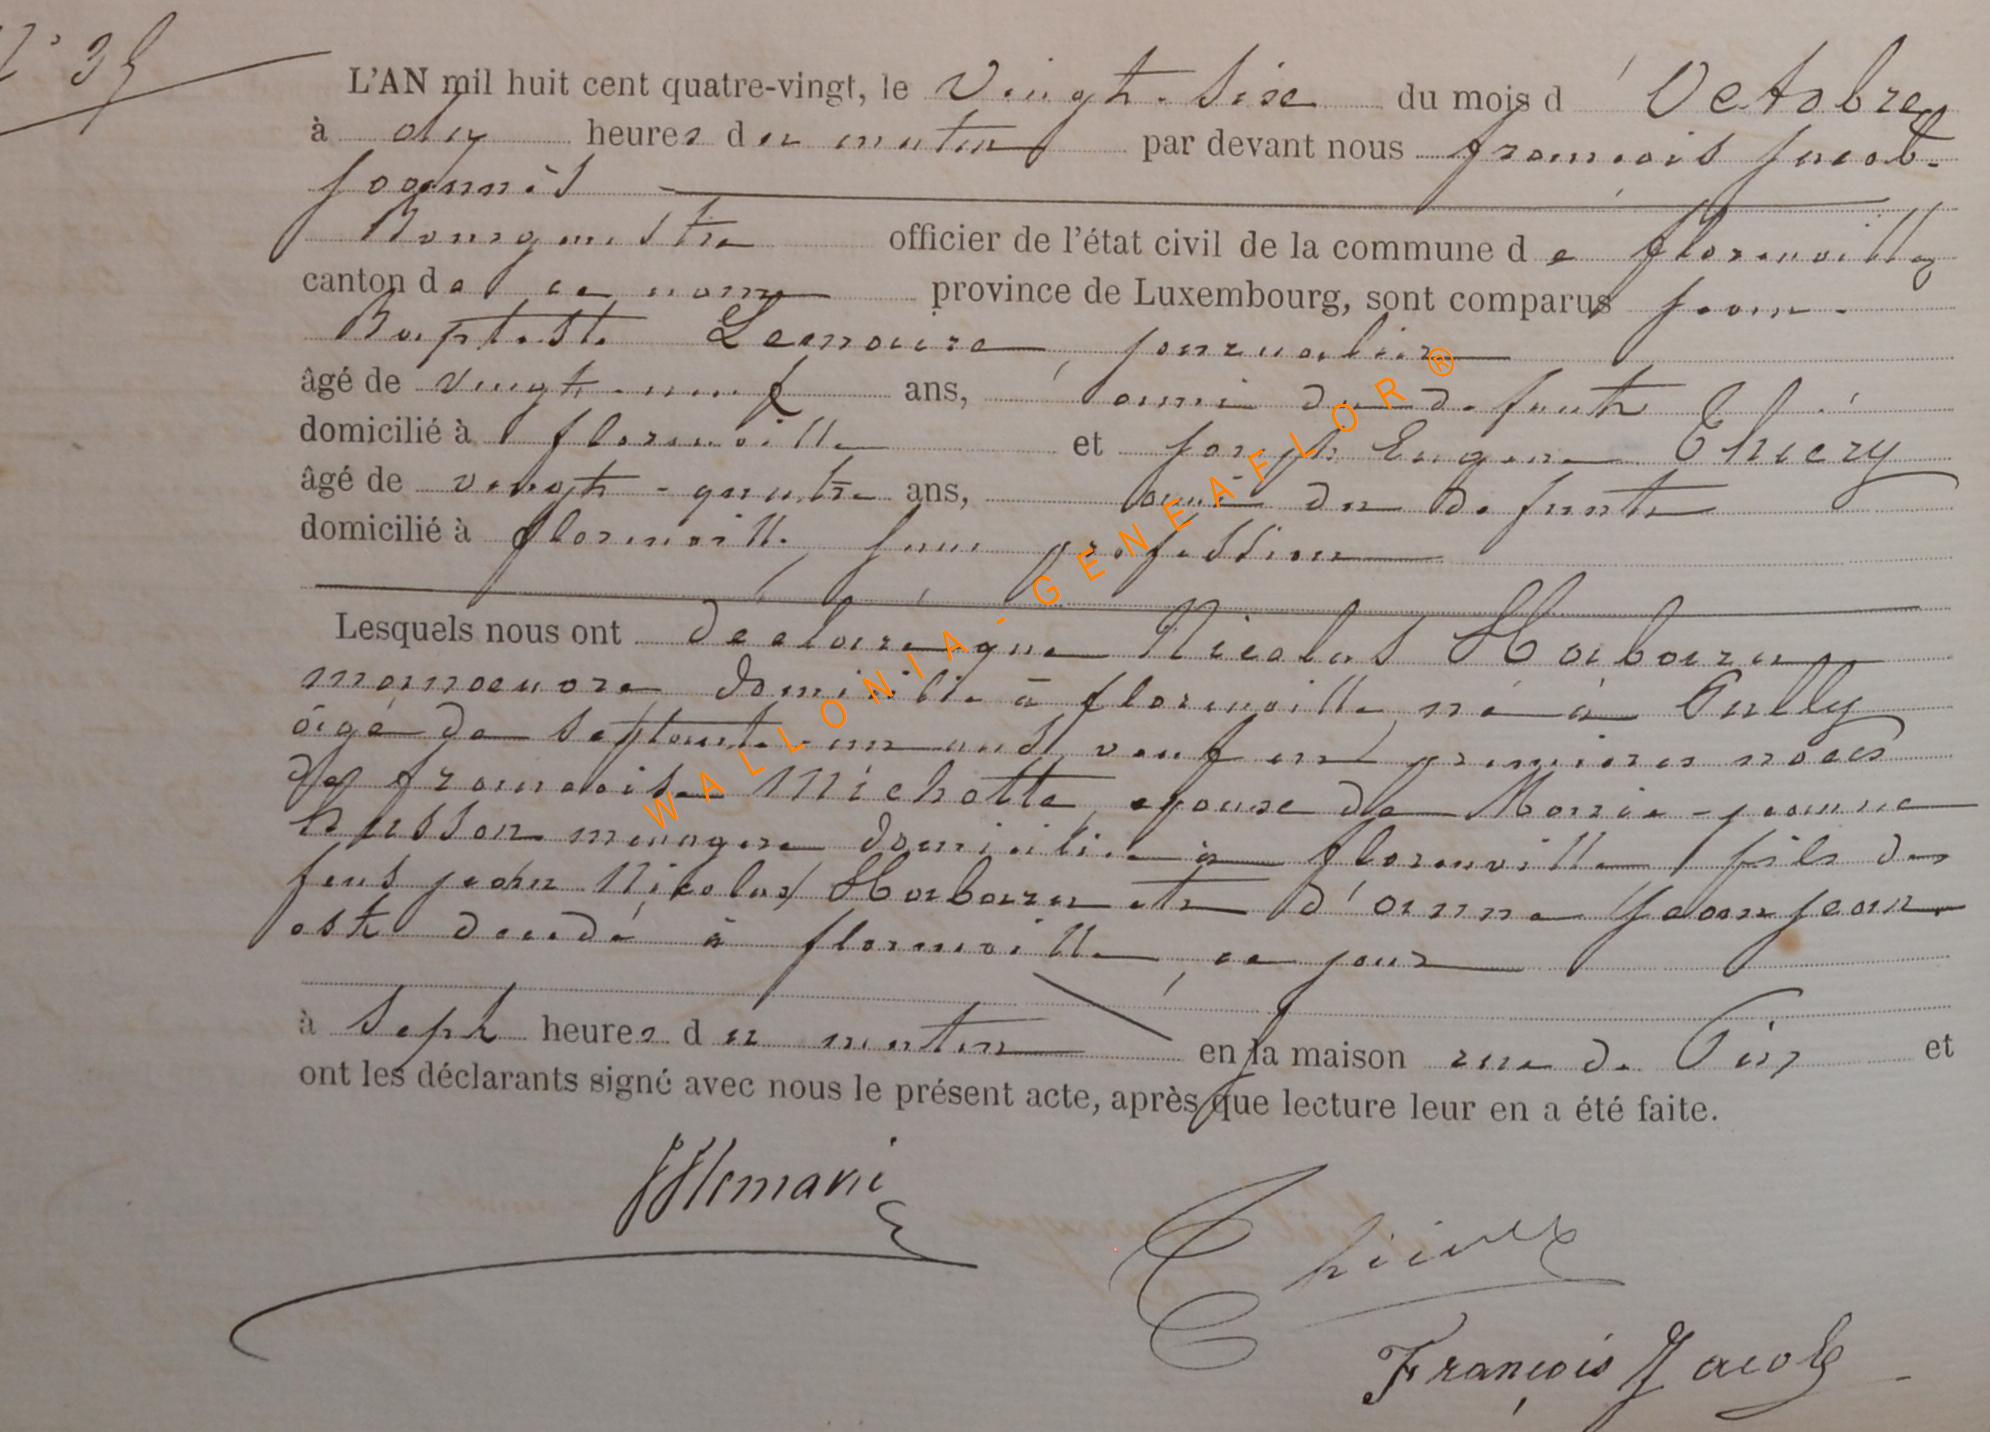 N° 35
L'AN mil huit cent quatre-vingt, le Vingt-Six du mois d'Octobre
à dix heures du matin par devant nous françois Jacob
Joannès
Bourgmestre officier de l'état civil de la commune de florenville
canton de ce nom province de Luxembourg, sont comparus Jean-
Baptiste Lemaire, journalier
âgé de vingt-neuf ans, ami du defunt
domicilié à florenville et Joseph Eugene Thiery
âgé de vingt-quatre ans, ami du defunt
domicilié à florenville, sans profession
Lesquels nous ont déclaré que Nicolas Habaru
manoeuvre domicilié à florenville, né à
âgé de septante-un ans, veuf en premières noces
de francoise Michotte, epoux de Marie-jeanne
husson menagere domiciliée à florenville, fils de
feus jean Nicolas Habaru et d'anne Jeanjean
est decedé à florenville, ce jour
à Sept heures du matin en la maison rue de et
ont les déclarants signé avec nous le présent acte, après que lecture leur en a été faite.
Thiery
François Jacob
WALLONIA-GENEAFLOR®